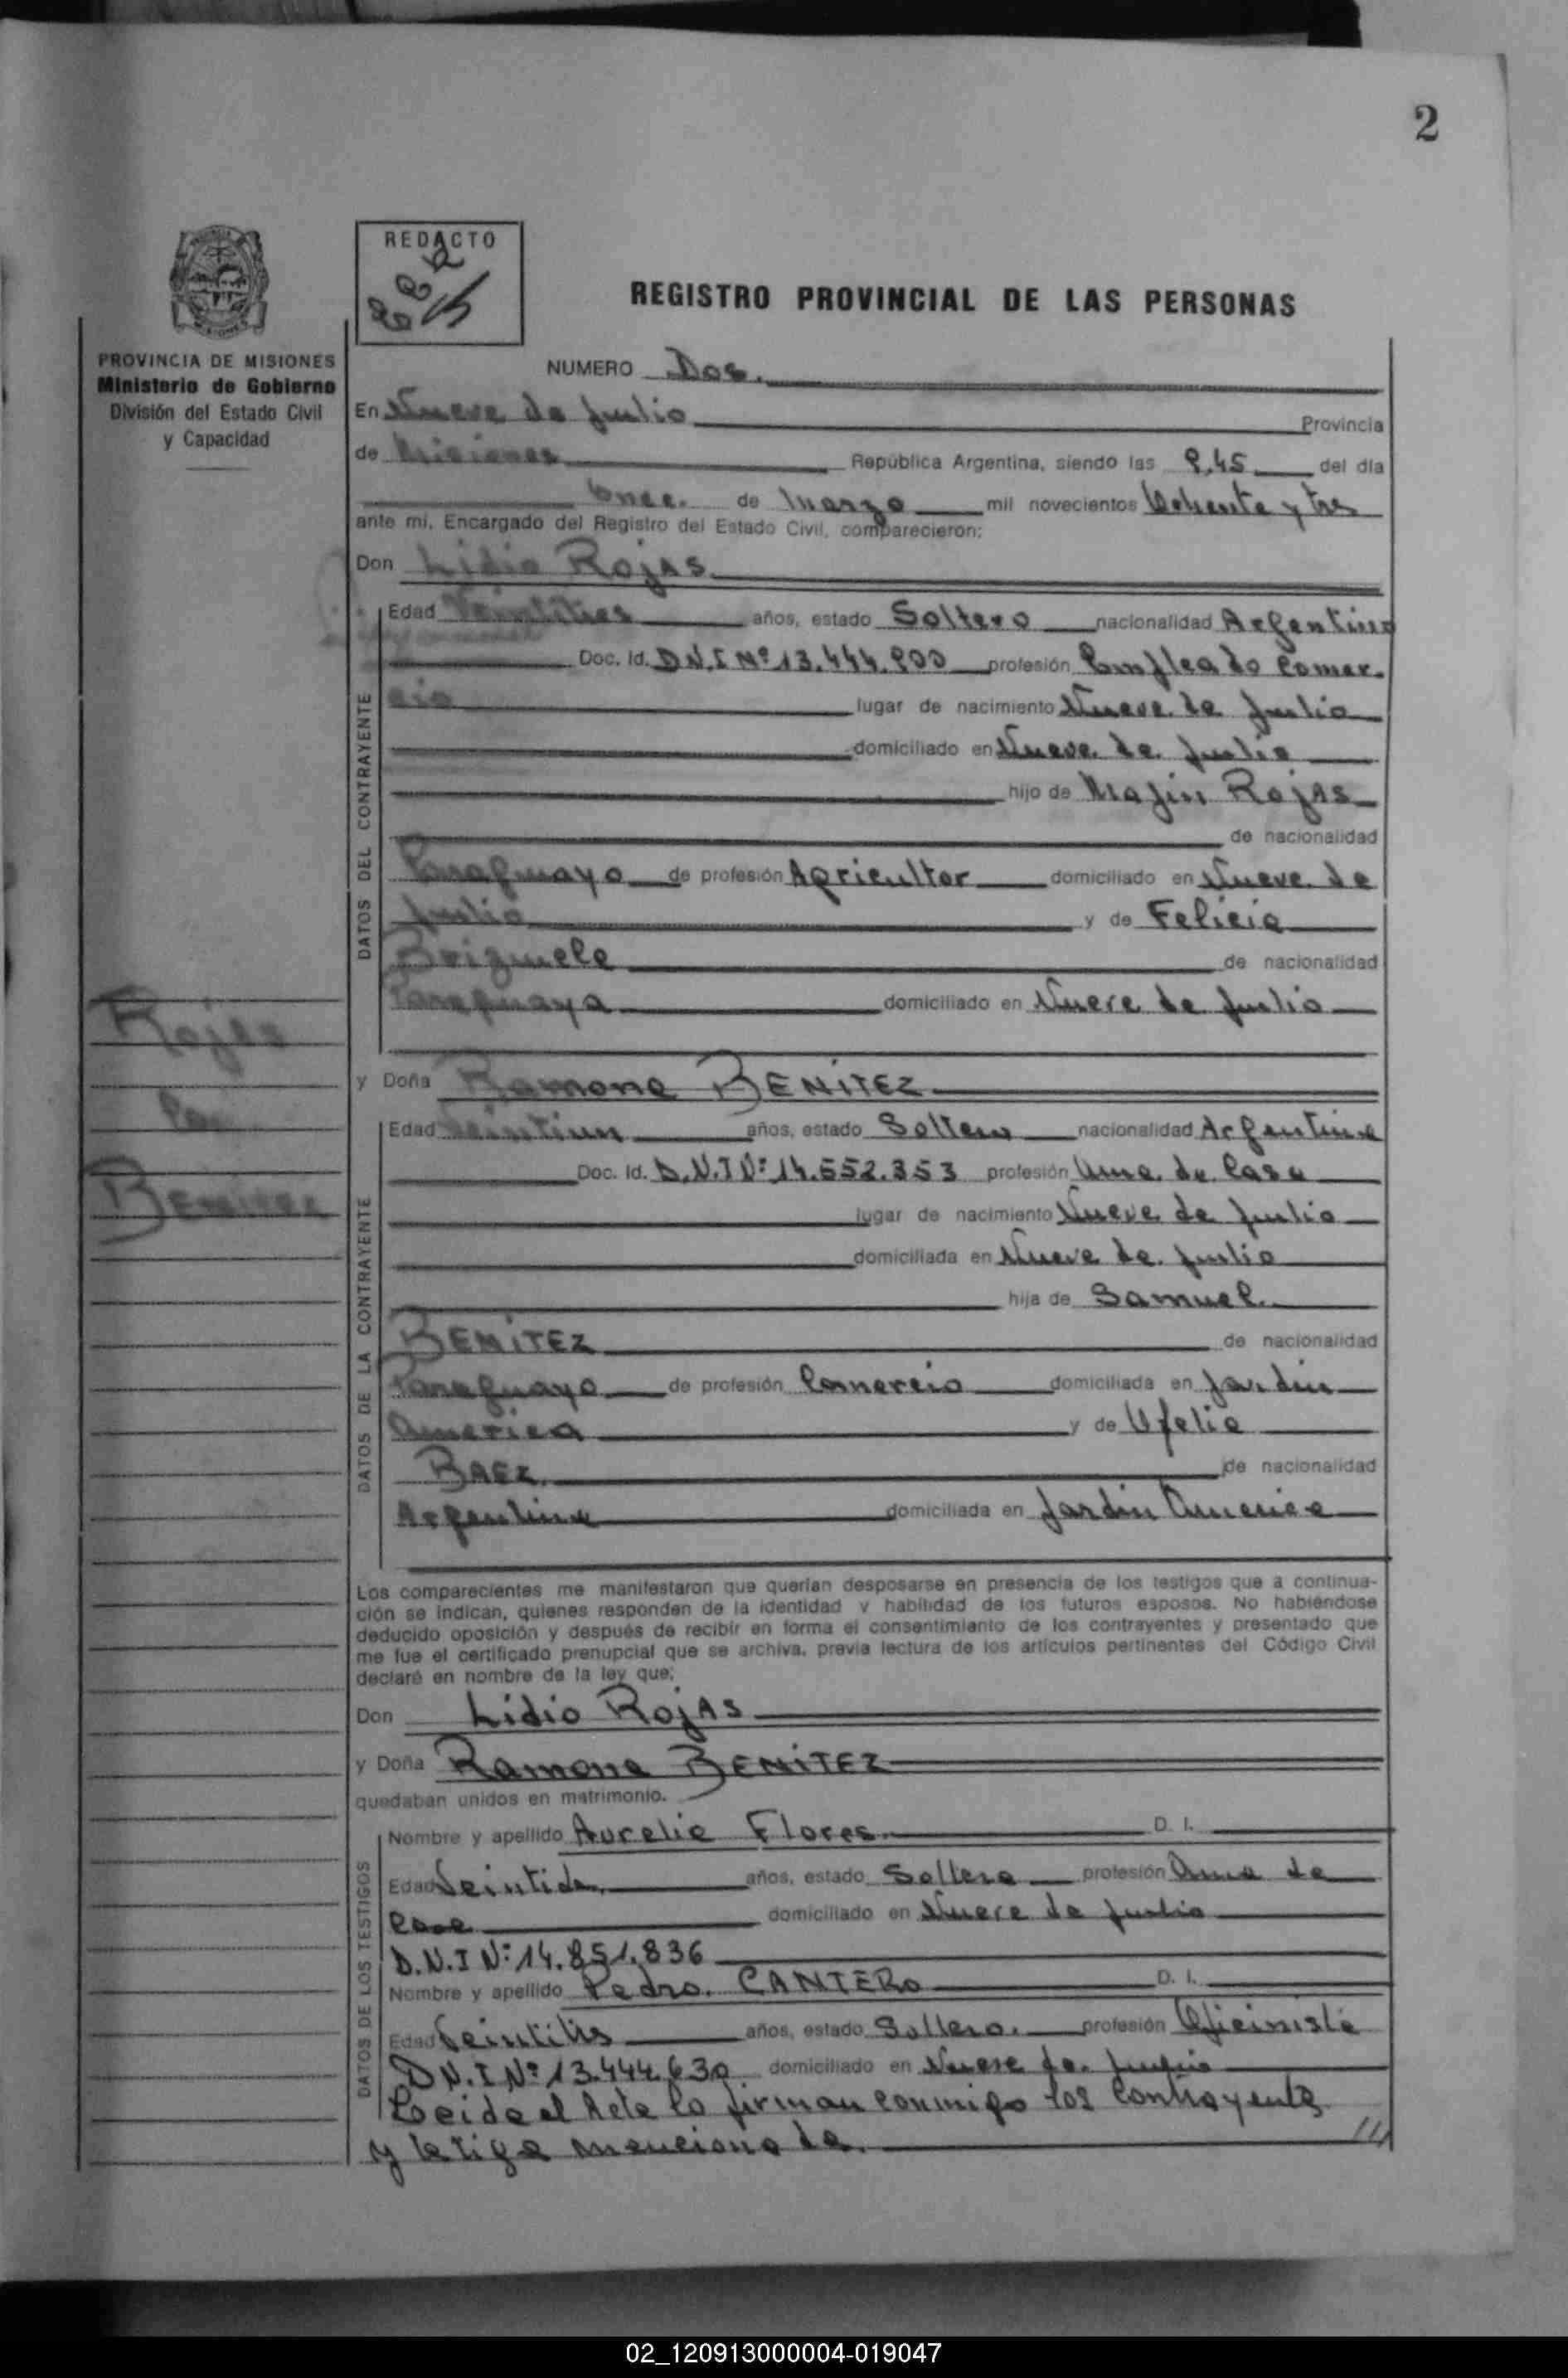 2
REDACTO
REGISTRO PROVINCIAL DE LAS PERSONAS
PROVINCIA DE MISIONES
Ministerio de Gobierno
División del Estado Civil
y Capacidad
NUMERO Dos.
En Nueve de Julio Provincia
de Misiones República Argentina, siendo las 9,45 del día
Once. de Marzo mil novecientos Ochenta y tres
ante mí, Encargado del Registro del Estado Civil, comparecieron:
Don Lidio Rojas
DATOS DEL CONTRAYENTE
Edad Veintitres años, estado Soltero nacionalidad Argentino
Doc. Id. D.N.I Nº 13.444.900 profesión Empleado Comer-
cio lugar de nacimiento Nueve de Julio
domiciliado en Nueve de Julio
hijo de Majin Rojas
de nacionalidad
Paraguayo de profesión Agricultor domiciliado en Nueve de
Julio y de Felicia
Brizuela de nacionalidad
Paraguaya domiciliado en Nueve de Julio
Rojas
Con
Benitez
y Doña Ramona BENITEZ
DATOS DE LA CONTRAYENTE
Edad Veintiun años, estado Soltera nacionalidad Argentina
Doc. Id. D.N.I Nº 14.552.353 profesión Ama de Casa
lugar de nacimiento Nueve de Julio
domiciliada en Nueve de Julio
hija de Samuel
BENITEZ de nacionalidad
Paraguayo de profesión Comercio domiciliada en Jardin
America y de Ofelia
BAEZ de nacionalidad
Argentina domiciliada en Jardin America
Los comparecientes me manifestaron que querían desposarse en presencia de los testigos que a continua-
ción se indican, quienes responden de la identidad y habilidad de los futuros esposos. No habiéndose
deducido oposición y después de recibir en forma el consentimiento de los contrayentes y presentado que
me fue el certificado prenupcial que se archiva, previa lectura de los artículos pertinentes del Código Civil
declaré en nombre de la ley que:
Don Lidio Rojas
y Doña Ramona BENITEZ
quedaban unidos en matrimonio.
DATOS DE LOS TESTIGOS
Nombre y apellido Aurelia Flores D. I.
Edad Veintidos años, estado Soltera profesión Ama de
Casa domiciliado en Nueve de Julio
D.N.I Nº 14.851.836
Nombre y apellido Pedro CANTERO D. I.
Edad Veintitres años, estado Soltero. profesión Oficinista
D.N.I Nº 13.444.630 domiciliado en Nueve de Julio
Leida el Acta la firman conmigo los Contrayentes
y testigos mencionados. ///
02_120913000004-019047